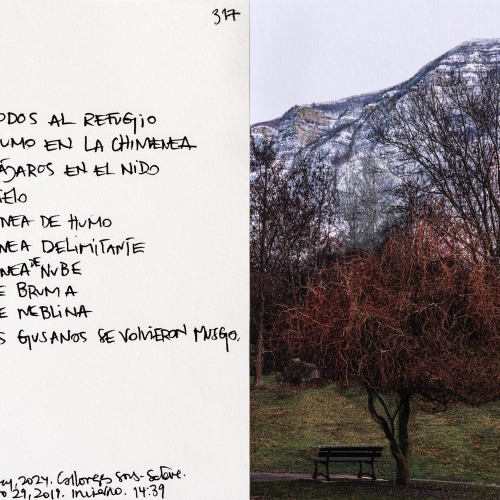 317
ODOS AL REFUGIO
UMO EN LA CHIMENEA
ÁJAROS EN EL NIDO
IELO
NEA DE HUMO
NEA DELIMITANTE
NEA DE NUBE
E BRUMA
E NEBLINA
S GUSANOS SE VOLVIERON MUSGO.
2024. Collonges-sous-Salève.
29, 2019. Invierno. 14:39